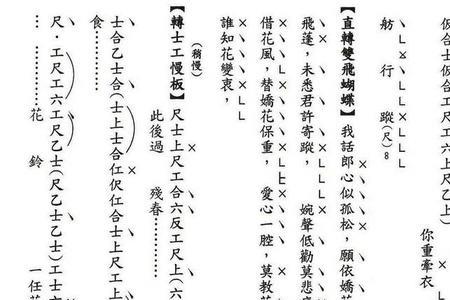 伬合士伬合工尺工六工上尺乙上)
你重牽衣
舫行蹤(尺)8
【直轉雙飛蝴蝶】我話郎心似孤松，願依嬌花
飛蓬，未悉君許寄蹤，婉聲低勸莫悲
借花風，替嬌花保重，愛心一腔，莫教花
誰知花變衷，
【轉士工慢板】尺士上尺工合六反工尺上(六
(稍慢)
此後過殘春………
士合乙士合(士上士合仁伬仁合士上尺工上
食………
尺．工尺工六工尺乙士(尺乙士乙士)工士六
………花鈴一任花